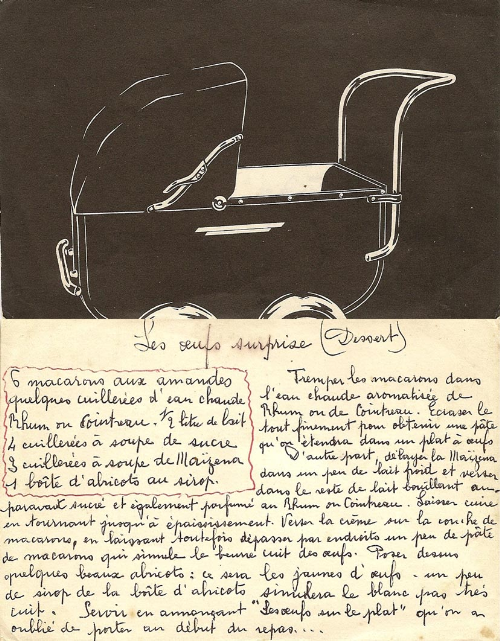 Les œufs surprise (Dessert)
6 macarons aux amandes
quelques cuillerées d'eau chaude
Rhum ou Cointreau. 1/2 litre de lait
4 cuillerées à soupe de sucre
3 cuillerées à soupe de Maïzena
1 boîte d'abricots au sirop.
Tremper les macarons dans
l'eau chaude aromatisée de
Rhum ou de Cointreau. Ecraser le
tout finement pour obtenir une pâte
qu'on étendra dans un plat à œufs
D'autre part, délayer la Maïzena
dans un peu de lait froid et verser
dans le reste de lait bouillant au-
paravant sucré et également parfumé au Rhum ou Cointreau. Laisser cuire
en tournant jusqu'à épaississement. Verser la crème sur la couche de
macarons, en laissant toutefois dépasser par endroits un peu de pâte
de macarons qui simule le beurre cuit des œufs. Poser dessus
quelques beaux abricots : ce sera les jaunes d'œufs - un peu
de sirop de la boîte d'abricots simulera le blanc pas très
cuit. Servir en annonçant "Les œufs sur le plat" qu'on a
oublié de porter au début du repas....